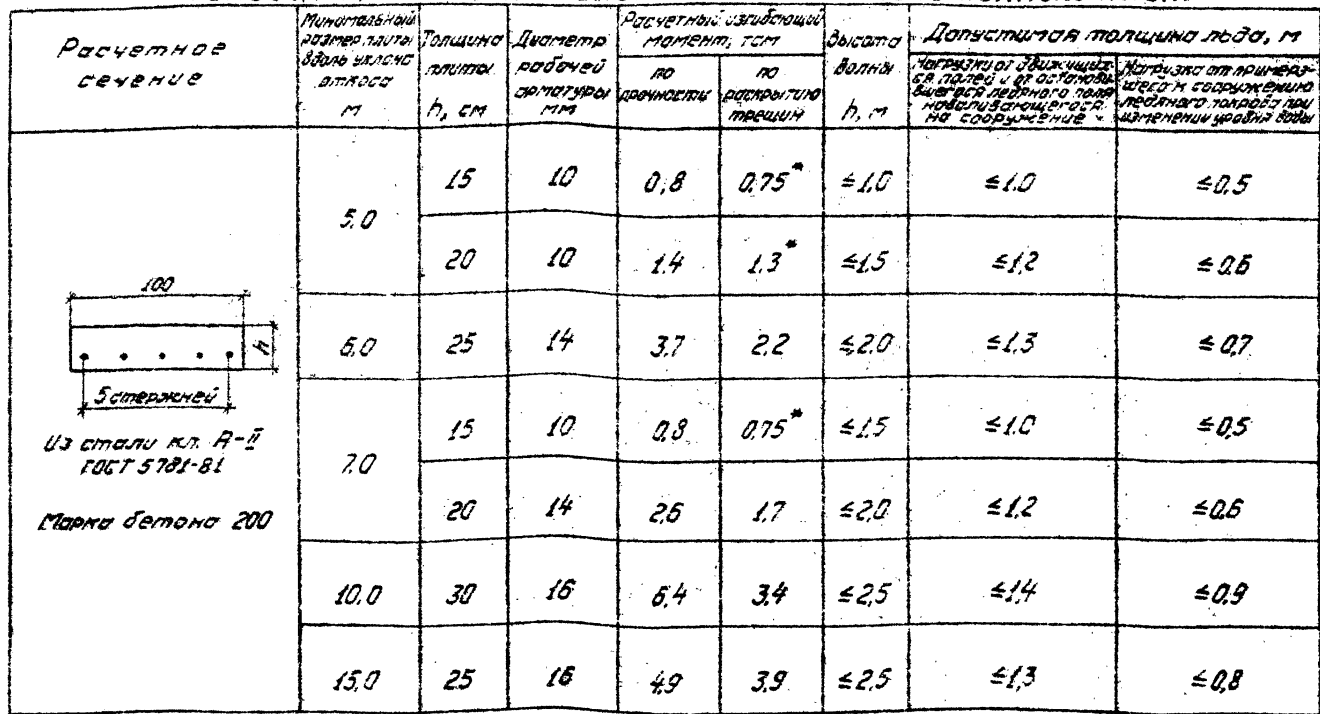 Расчетное
сечение
Минимальный
размер плиты
вдоль уклона
откоса
м
Толщина
плиты
h, см
Диаметр
рабочей
арматуры
мм
Расчетный изгибающий
момент, тсм
по
прочности
по
раскрытию
трещин
Высота
волны
h, м
Допустимая толщина льда, м
Нагрузки от движущих-
ся полей и от останови-
вшегося ледяного поля
наваливающегося
на сооружение
Нагрузка от примерз-
шего к сооружению
ледяного покрова при
изменении уровня воды
100
h
5 стержней
Из стали кл. А-II
ГОСТ 5781-81
Марка бетона 200
5.0 15 10 0,8 0,75* ≤1.0 ≤1.0 ≤0.5
20 10 1.4 1.3* ≤1.5 ≤1,2 ≤0.6
6.0 25 14 3.7 2.2 ≤2.0 ≤1.3 ≤0,7
7.0 15 10 0.8 0.75* ≤1.5 ≤1.0 ≤0,5
20 14 2.6 1.7 ≤2.0 ≤1.2 ≤0.6
10.0 30 16 6.4 3.4 ≤2,5 ≤1.4 ≤0.9
15.0 25 16 4.9 3.9 ≤2.5 ≤1,3 ≤0,8